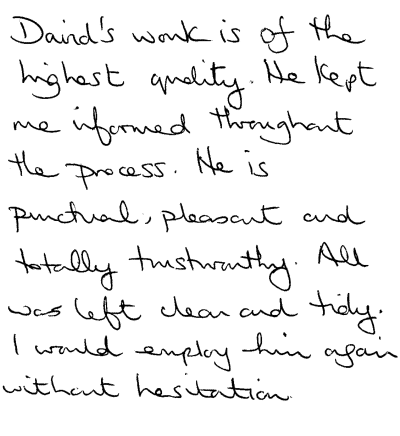 David's work is of the
highest quality. He kept
me informed throughout
the process. He is
punctual, pleasant and
totally trustworthy. All
was left clean and tidy.
I would employ him again
without hesitation.